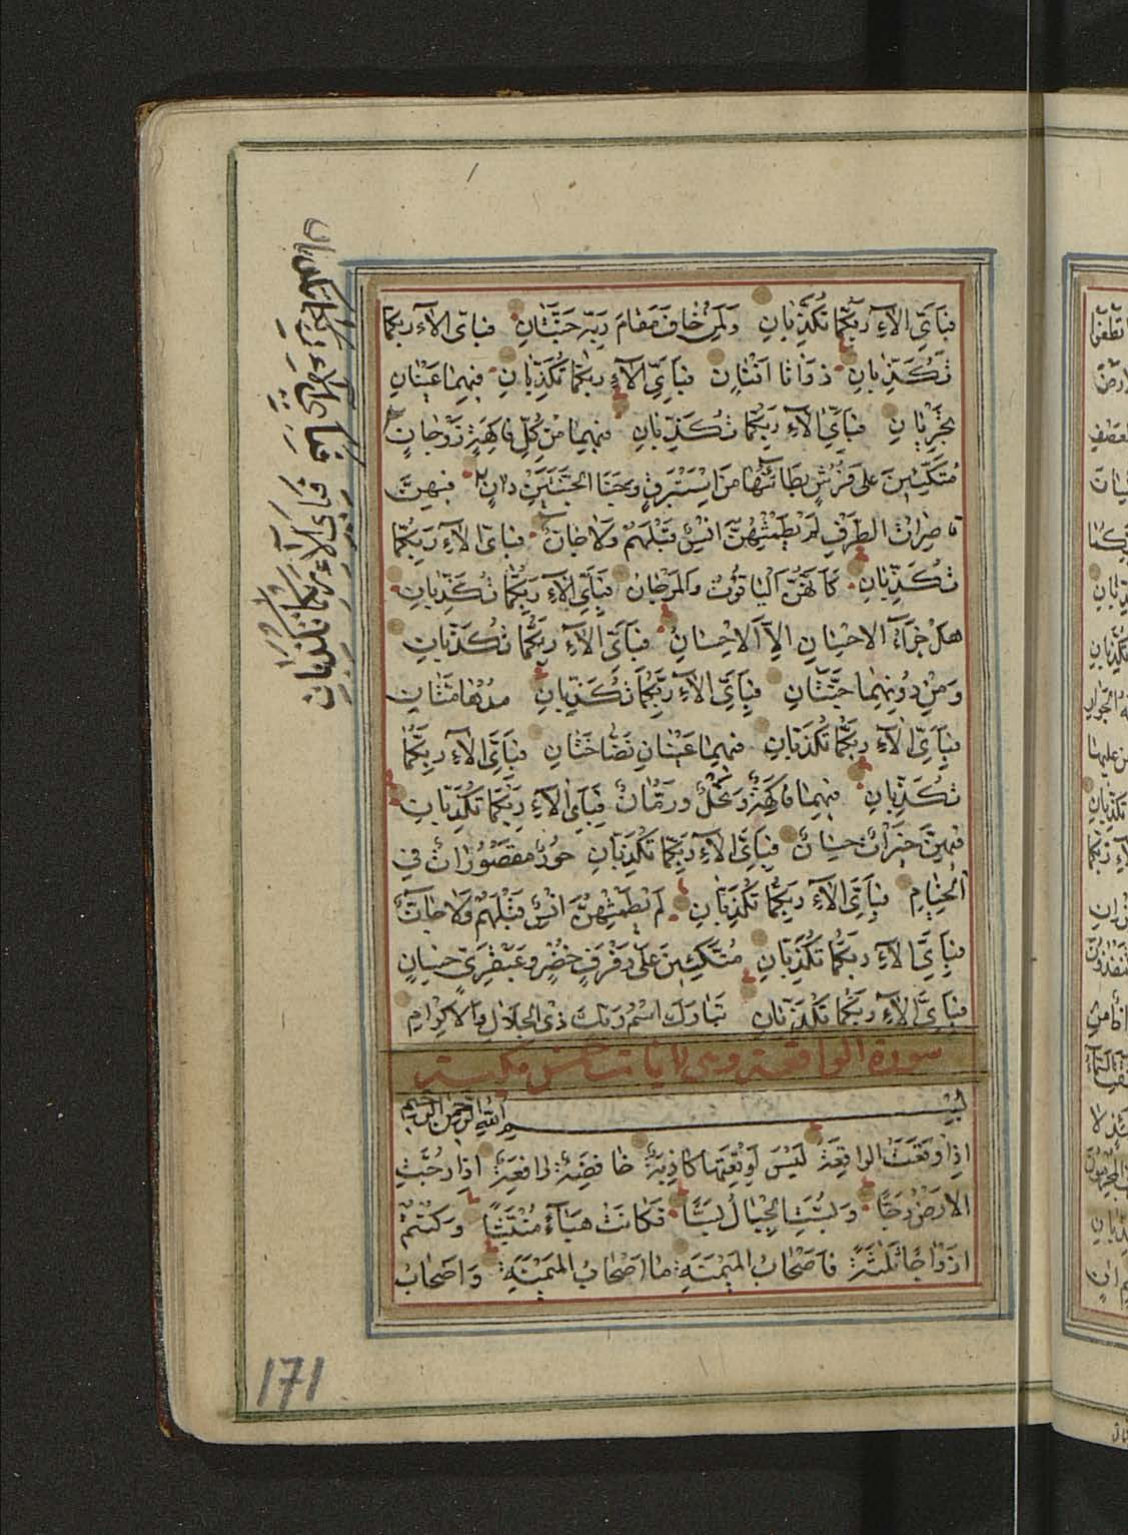 فَبِاَيِّ الٓاءِ رَبِّكُمٰا تُكَذِّبٰانِ وَلِمَنْ خٰافَ مَقٰامَ رَبِّهٖ جَنَّتٰانِ فَبِاَيِّ الٓاءِ رَبِّكُمٰا
تُكَذِّبٰانِ ذَوٰاتٰا اَفْنٰانٍ فَبِاَيِّ الٓاءِ رَبِّكُمٰا تُكَذِّبٰانِ فيهِمٰا عَيْنٰانِ
تَجْرِيٰانِ فَبِاَيِّ الٓاءِ رَبِّكُمٰا تُكَذِّبٰانِ فيهِمٰا مِنْ كُلِّ فٰاكِهَةٍ زَوْجٰانِ
مُتَّكِئينَ عَلىٰ فُرُشٍ بَطٰائِنُهٰا مِنْ اِسْتَبْرَقٍ وَجَنَا الْجَنَّتَيْنِ دٰانٍ فيهِنَّ
قٰاصِرٰاتُ الطَّرْفِ لَمْ يَطْمِثْهُنَّ اِنْسٌ قَبْلَهُمْ وَلٰا جٰانٌّ فَبِاَيِّ الٓاءِ رَبِّكُمٰا
تُكَذِّبٰانِ كَاَنَّهُنَّ الْيٰاقُوتُ وَالْمَرْجٰانُ فَبِاَيِّ الٓاءِ رَبِّكُمٰا تُكَذِّبٰانِ
هَلْ جَزٰآءُ الْاِحْسٰانِ اِلَّا الْاِحْسٰانُ فَبِاَيِّ الٓاءِ رَبِّكُمٰا تُكَذِّبٰانِ
وَمِنْ دُونِهِمٰا جَنَّتٰانِ فَبِاَيِّ الٓاءِ رَبِّكُمٰا تُكَذِّبٰانِ مُدْهٰامَّتٰانِ
فَبِاَيِّ الٓاءِ رَبِّكُمٰا تُكَذِّبٰانِ فيهِمٰا عَيْنٰانِ نَضّٰاخَتٰانِ فَبِاَيِّ الٓاءِ رَبِّكُمٰا
تُكَذِّبٰانِ فيهِمٰا فٰاكِهَةٌ وَنَخْلٌ وَرُمّٰانٌ فَبِاَيِّ الٓاءِ رَبِّكُمٰا تُكَذِّبٰانِ
فيهِنَّ خَيْرٰاتٌ حِسٰانٌ فَبِاَيِّ الٓاءِ رَبِّكُمٰا تُكَذِّبٰانِ حُورٌ مَقْصُورٰاتٌ فِي
الْخِيٰامِ فَبِاَيِّ الٓاءِ رَبِّكُمٰا تُكَذِّبٰانِ لَمْ يَطْمِثْهُنَّ اِنْسٌ قَبْلَهُمْ وَلٰا جٰانٌّ
فَبِاَيِّ الٓاءِ رَبِّكُمٰا تُكَذِّبٰانِ مُتَّكِئينَ عَلىٰ رَفْرَفٍ خُضْرٍ وَعَبْقَرِيٍّ حِسٰانٍ
فَبِاَيِّ الٓاءِ رَبِّكُمٰا تُكَذِّبٰانِ تَبٰارَكَ اسْمُ رَبِّكَ ذِي الْجَلٰالِ وَالْاِكْرٰامِ
سورة الواقعة وهى
بِسْمِ اللّٰهِ الرَّحْمٰنِ الرَّحيمِ
اِذٰا وَقَعَتِ الْوٰاقِعَةُ لَيْسَ لِوَقْعَتِهٰا كٰاذِبَةٌ خٰافِضَةٌ رٰافِعَةٌ اِذٰا رُجَّتِ
الْاَرْضُ رَجًّا وَبُسَّتِ الْجِبٰالُ بَسًّا فَكٰانَتْ هَبٰآءً مُنْبَثًّا وَكُنْتُمْ
اَزْوٰاجًا ثَلٰثَةً فَاَصْحٰابُ الْمَيْمَنَةِ مٰا اَصْحٰابُ الْمَيْمَنَةِ وَاَصْحٰابُ
فَبِاَيِّ الٓاءِ رَبِّكُمٰا تُكَذِّبٰانِ
171